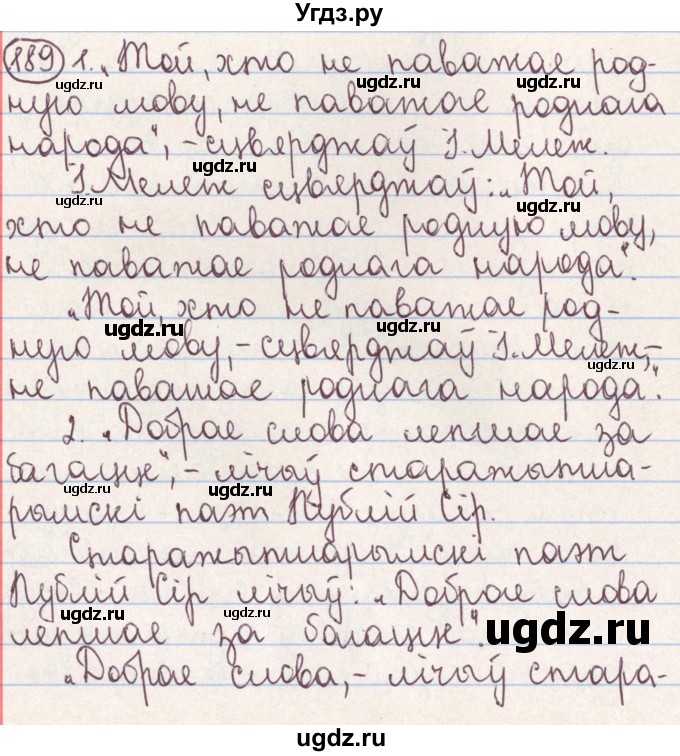 Угдз.ру
189 1. „Той, хто не паважае род-
ную мову, не паважае роднага
народа“, – сцвярджаў І. Мележ.
І. Мележ сцвярджаў: „Той,
хто не паважае родную мову,
не паважае роднага народа“.
„Той, хто не паважае род-
ную мову, – сцвярджаў І. Мележ, –
не паважае роднага народа“.
2. „Добрае слова лепшае за
багацце“, – лічыў старажытна-
рымскі паэт Публій Сір.
Старажытнарымскі паэт
Публій Сір лічыў: „Добрае слова
лепшае за багацце“.
„Добрае слова, – лічыў стара-
ugdz.ru